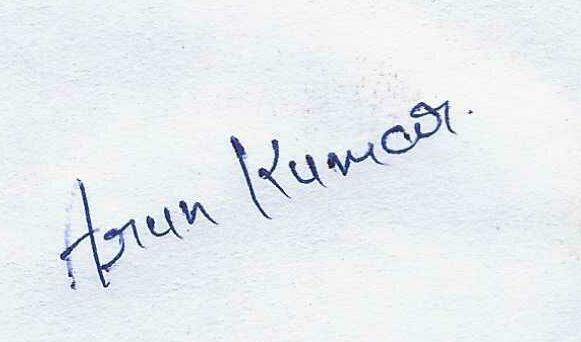 Arun Kumar.